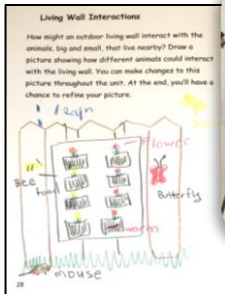 Living Wall Interactions
How might an outdoor living wall interact with the
animals, big and small, that live nearby? Draw a
picture showing how different animals could interact
with the living wall. You can make changes to this
picture throughout the unit. At the end, you'll have a
chance to refine your picture.
Rain
Flower
Bee
Butterfly
worm
mouse
28